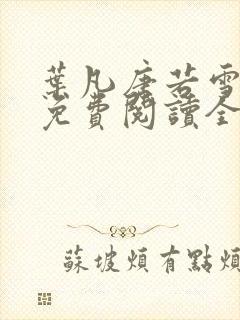 葉凡唐若雪
免費閱讀全
蘇坡煩有點煩